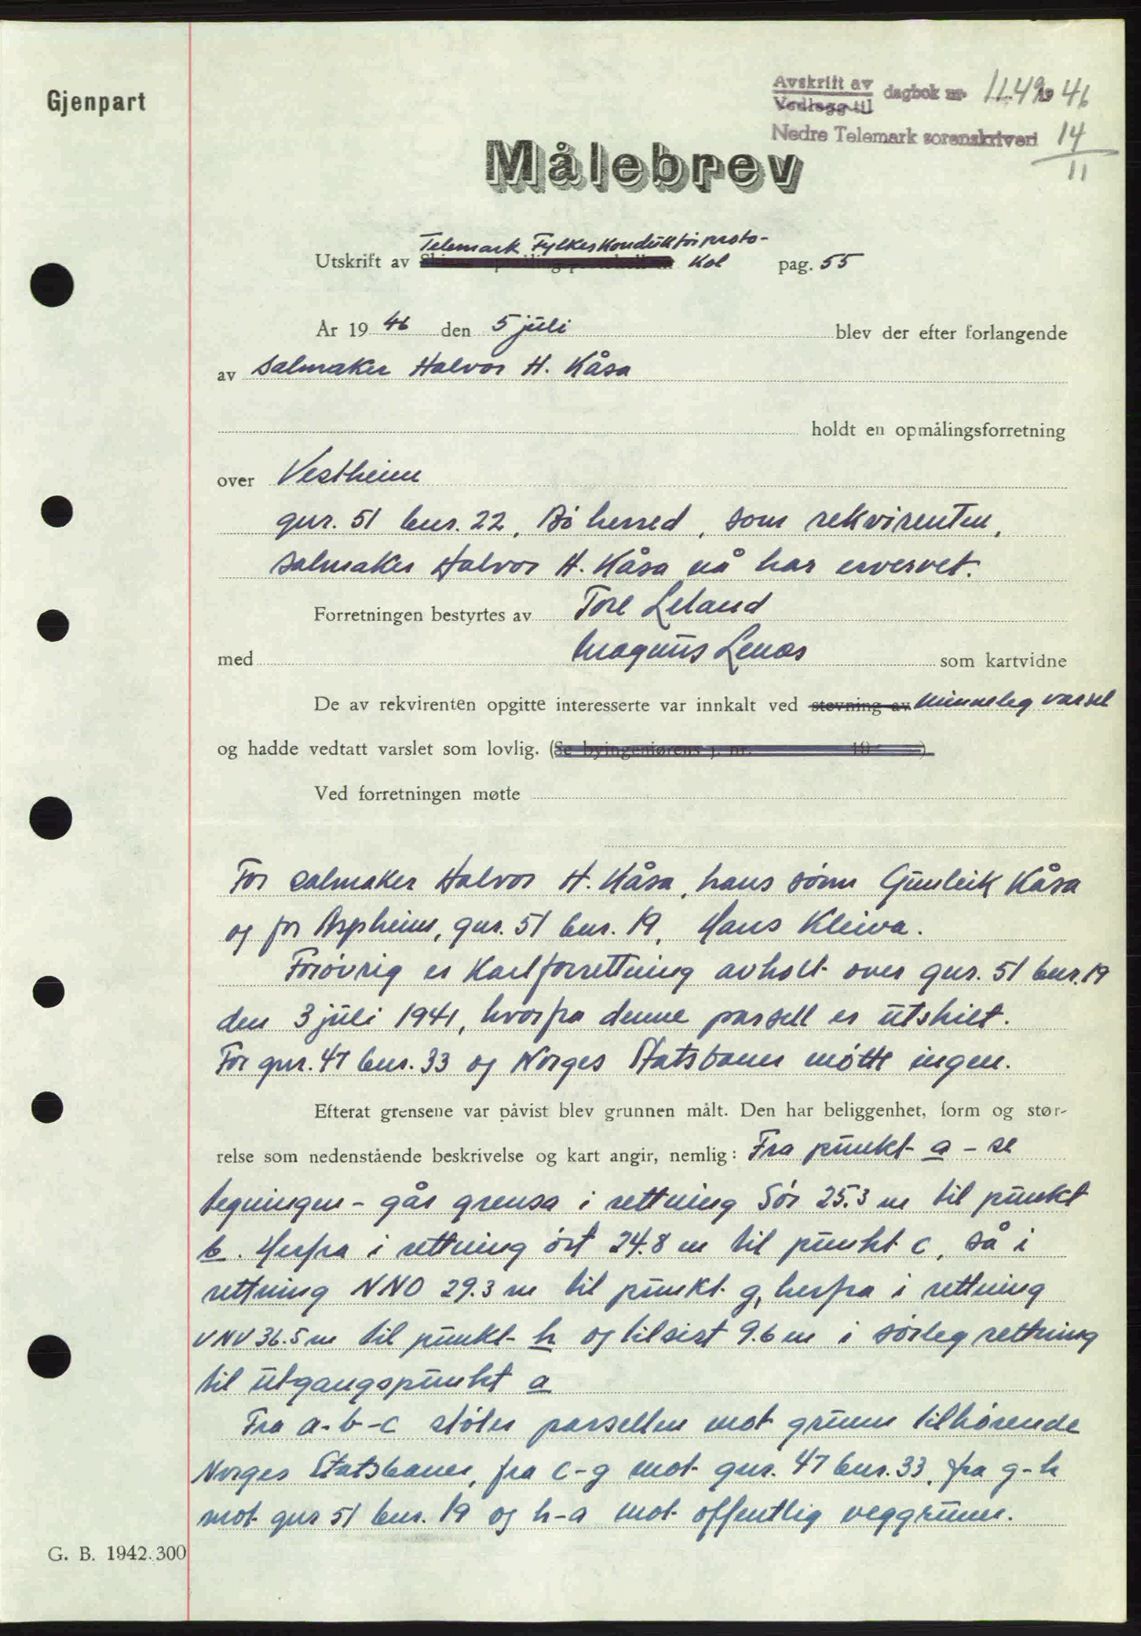 Gjenpart
Avskrift av
Vedlegg til dagbok nr. 1149 1946
Nedre Telemark sorenskriveri 14/11
Målebrev
Utskrift av Telemark Fylkeskonduktørproto-
kol pag. 55
År 1946 den 5 juli blev der efter forlangende
av salmaker Halvor H. Kåsa
holdt en opmålingsforretning
over Vestheim
gnr. 51 bnr. 22, Bø herred, som rekvirenten,
salmaker Halvor H. Kåsa nå har ervervet.
Forretningen bestyrtes av Tore Leland
med Magnus Lenæs som kartvidne
De av rekvirenten opgitte interesserte var innkalt ved stevning av minneleg varsel
og hadde vedtatt varslet som lovlig. (Se byingeniørens j. nr. 19 )
Ved forretningen møtte
For salmaker Halvor H. Kåsa, hans sønn Gunleik Kåsa
og for Aspheim, gnr. 51 bnr. 19, Hans Kleiva.
Forøvrig er kartforrettning avholt over gnr. 51 bnr. 19
den 3 juli 1941, hvorfra denne parsell er utskilt.
For gnr. 47 bnr. 33 og Norges Statsbaner møtte ingen.
Efterat grensene var påvist blev grunnen målt. Den har beliggenhet, form og stør-
relse som nedenstående beskrivelse og kart angir, nemlig: Fra punkt a - se
tegningen - går grensa i rettning Sør 25.3 m til punkt
b. Herfra i rettning øst 24.8 m til punkt c, så i
rettning NNO 29.3 m til punkt g, herfra i rettning
VNV 36.5 m til punkt h og tilsist 9.6 m i sørleg rettning
til utgangspunkt a
Fra a-b-c støter parsellen mot grunn tilhørende
Norges Statsbaner, fra c-g mot gnr. 47 bnr. 33, fra g-h
mot gnr 51 bnr. 19 og h-a mot offentlig veggrunn.
G. B. 1942.300